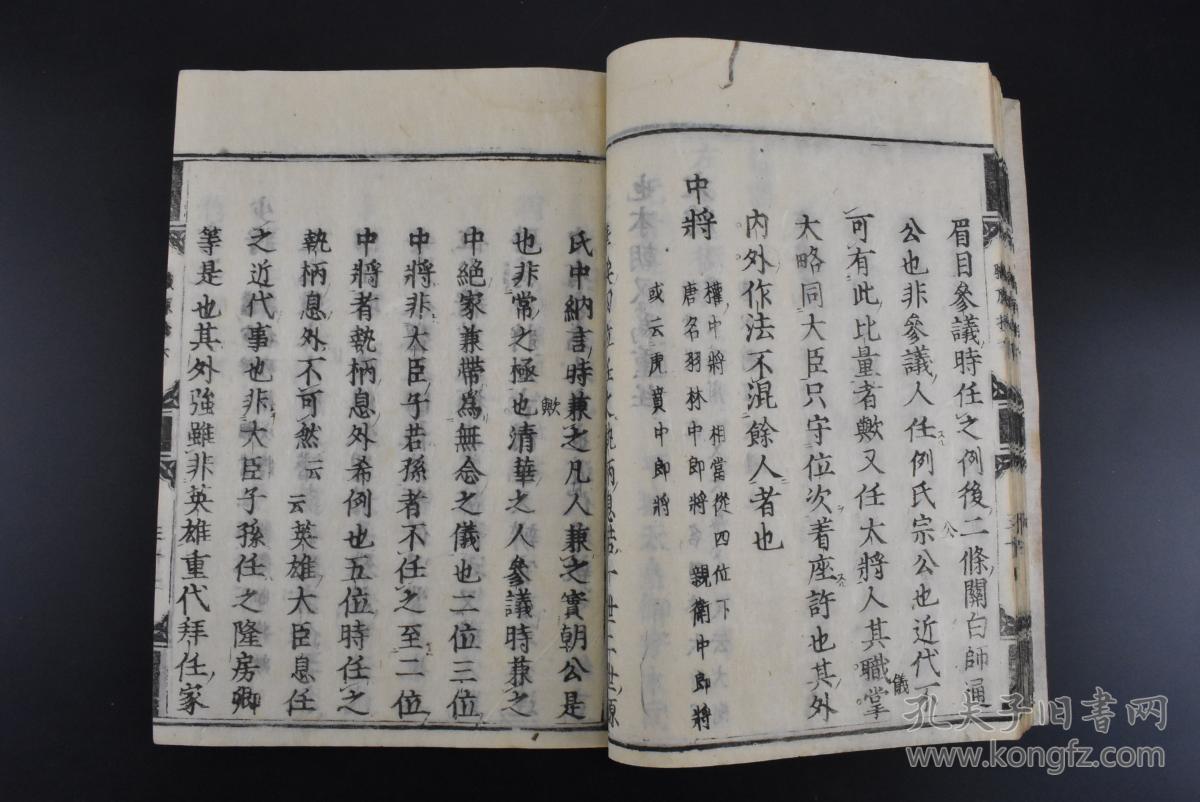 眉目參議時任之例後二條關白師通
公也非參議人任例氏宗公也近代不
可有此比量者歟又任大將人其職掌
大略同大臣只守位次着座許也其外
内外作法不混餘人者也
中將
權中將 相當從四位下
唐名羽林中郎將 親衛中郎將
或云虎賁中郎將
氏中納言時兼之凡人兼之實朝公是
也非常之極也清華之人參議時兼之
中絶家兼帶為無念之儀也二位三位
中將非大臣子若孫者不任之至二位
中將者執柄息外希例也五位時任之
執柄息外不可然云云英雄大臣息任
之近代事也非大臣子孫任之隆房卿
等是也其外強雖非英雄重代拜任家
歟
儀
公
孔夫子旧书网
www.kongfz.com